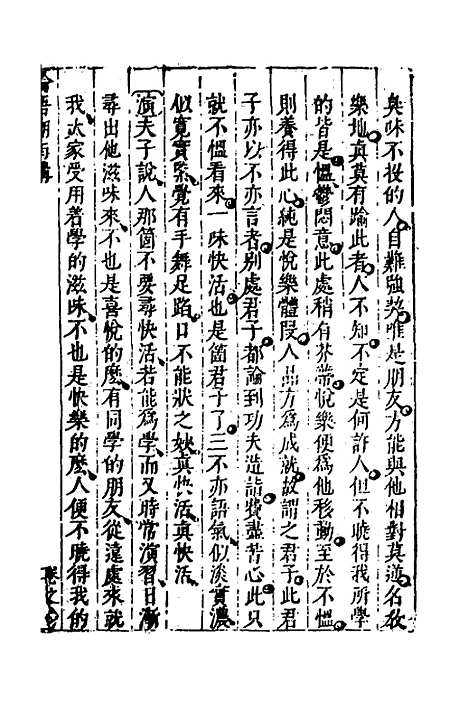 臭味不投的人自難強契唯是朋友方能與他相對莫逆名敎
樂地真莫有踰此者人不知不定是何許人但不曉得我所學
的皆是慍鬱悶意此處稍有芥蒂悅樂便爲他移動至於不慍
則養得此心純是悅樂體段人品方爲成就故謂之君子此君
子亦以不亦言者別處君子都論到功夫造詣費盡苦心此只
就不慍看來一味快活也是箇君子了三不亦語氣似淡實濃
似寛實緊覺有手舞足蹈口不能狀之妙真快活真快活
演夫子說人那箇不要尋快活若能爲學而又時常演習日漸
尋出他滋味來不也是喜悅的麽有同學的朋友從遠處來就
我大家受用着學的滋味不也是快樂的麽人便不曉得我的